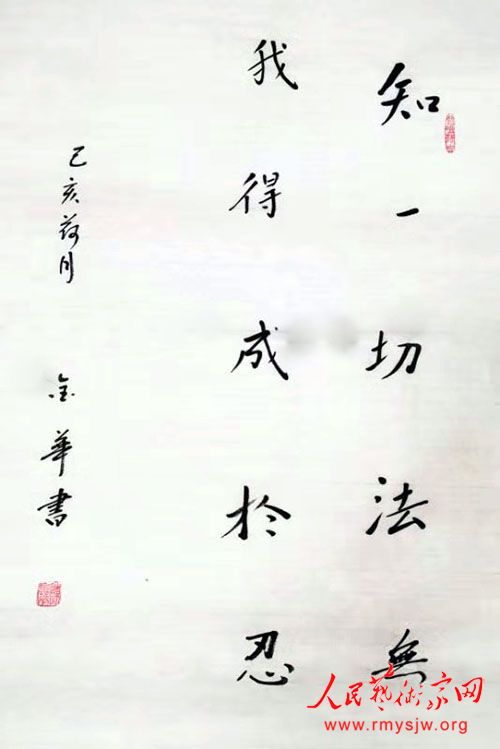 知一切法無
我得成於忍
己亥荷月
金華書
人民藝術家网
www.rmysjw.org